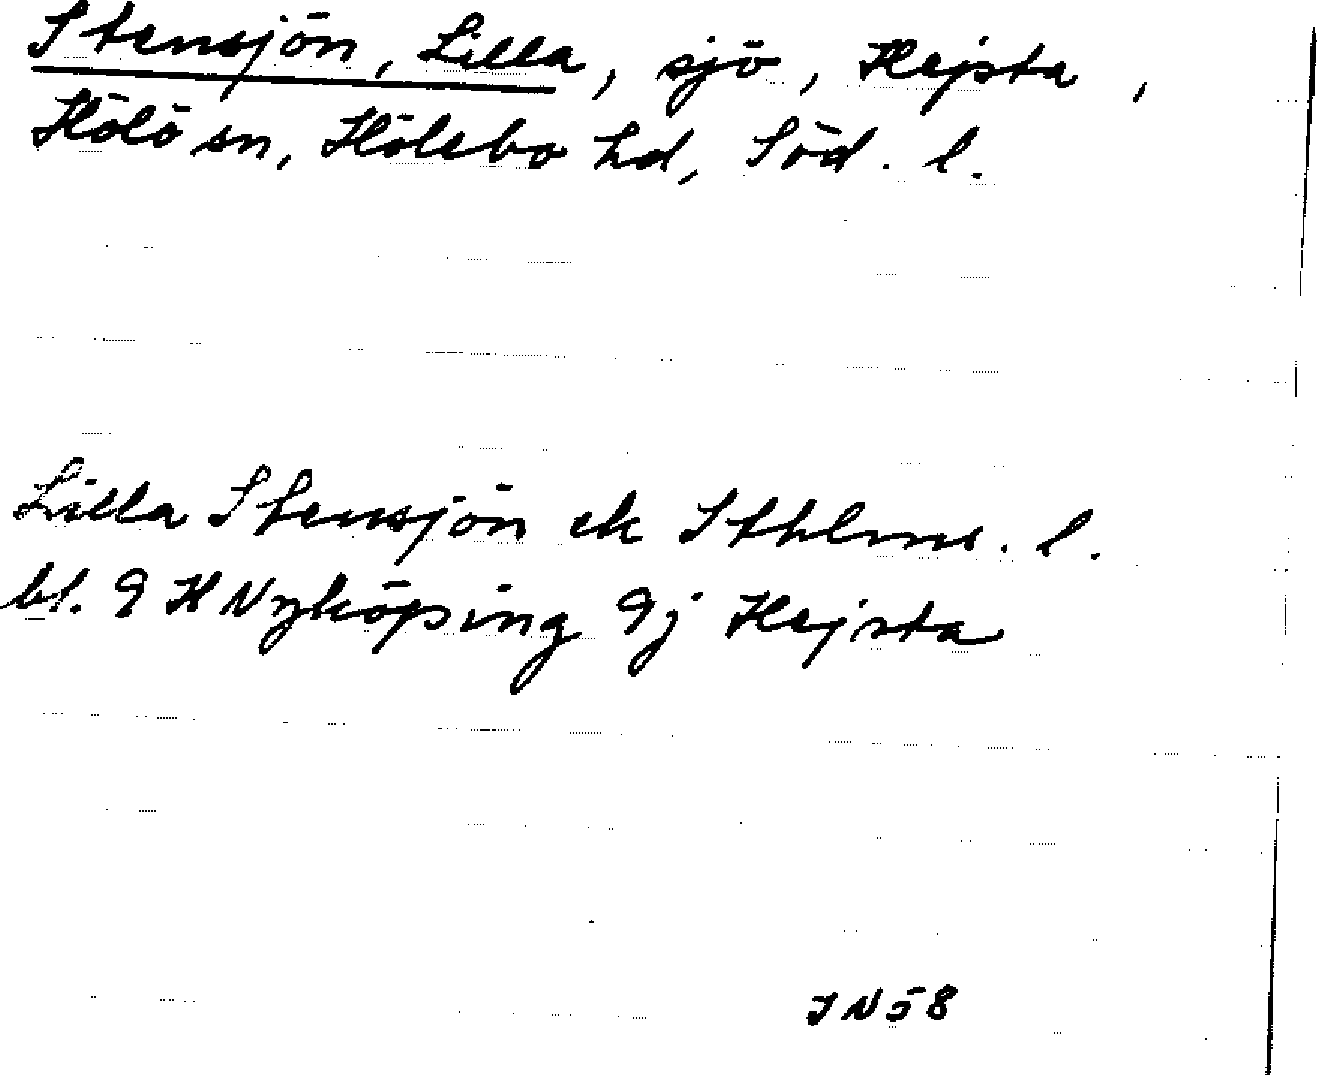 Stensjön, Lilla, sjö, Hejsta,
Hölö sn, Hölebo hd, Söd. l.
Lilla Stensjön ek Sthlms. l.
bl. 9 H Nyköping 9j Hejsta
JN58